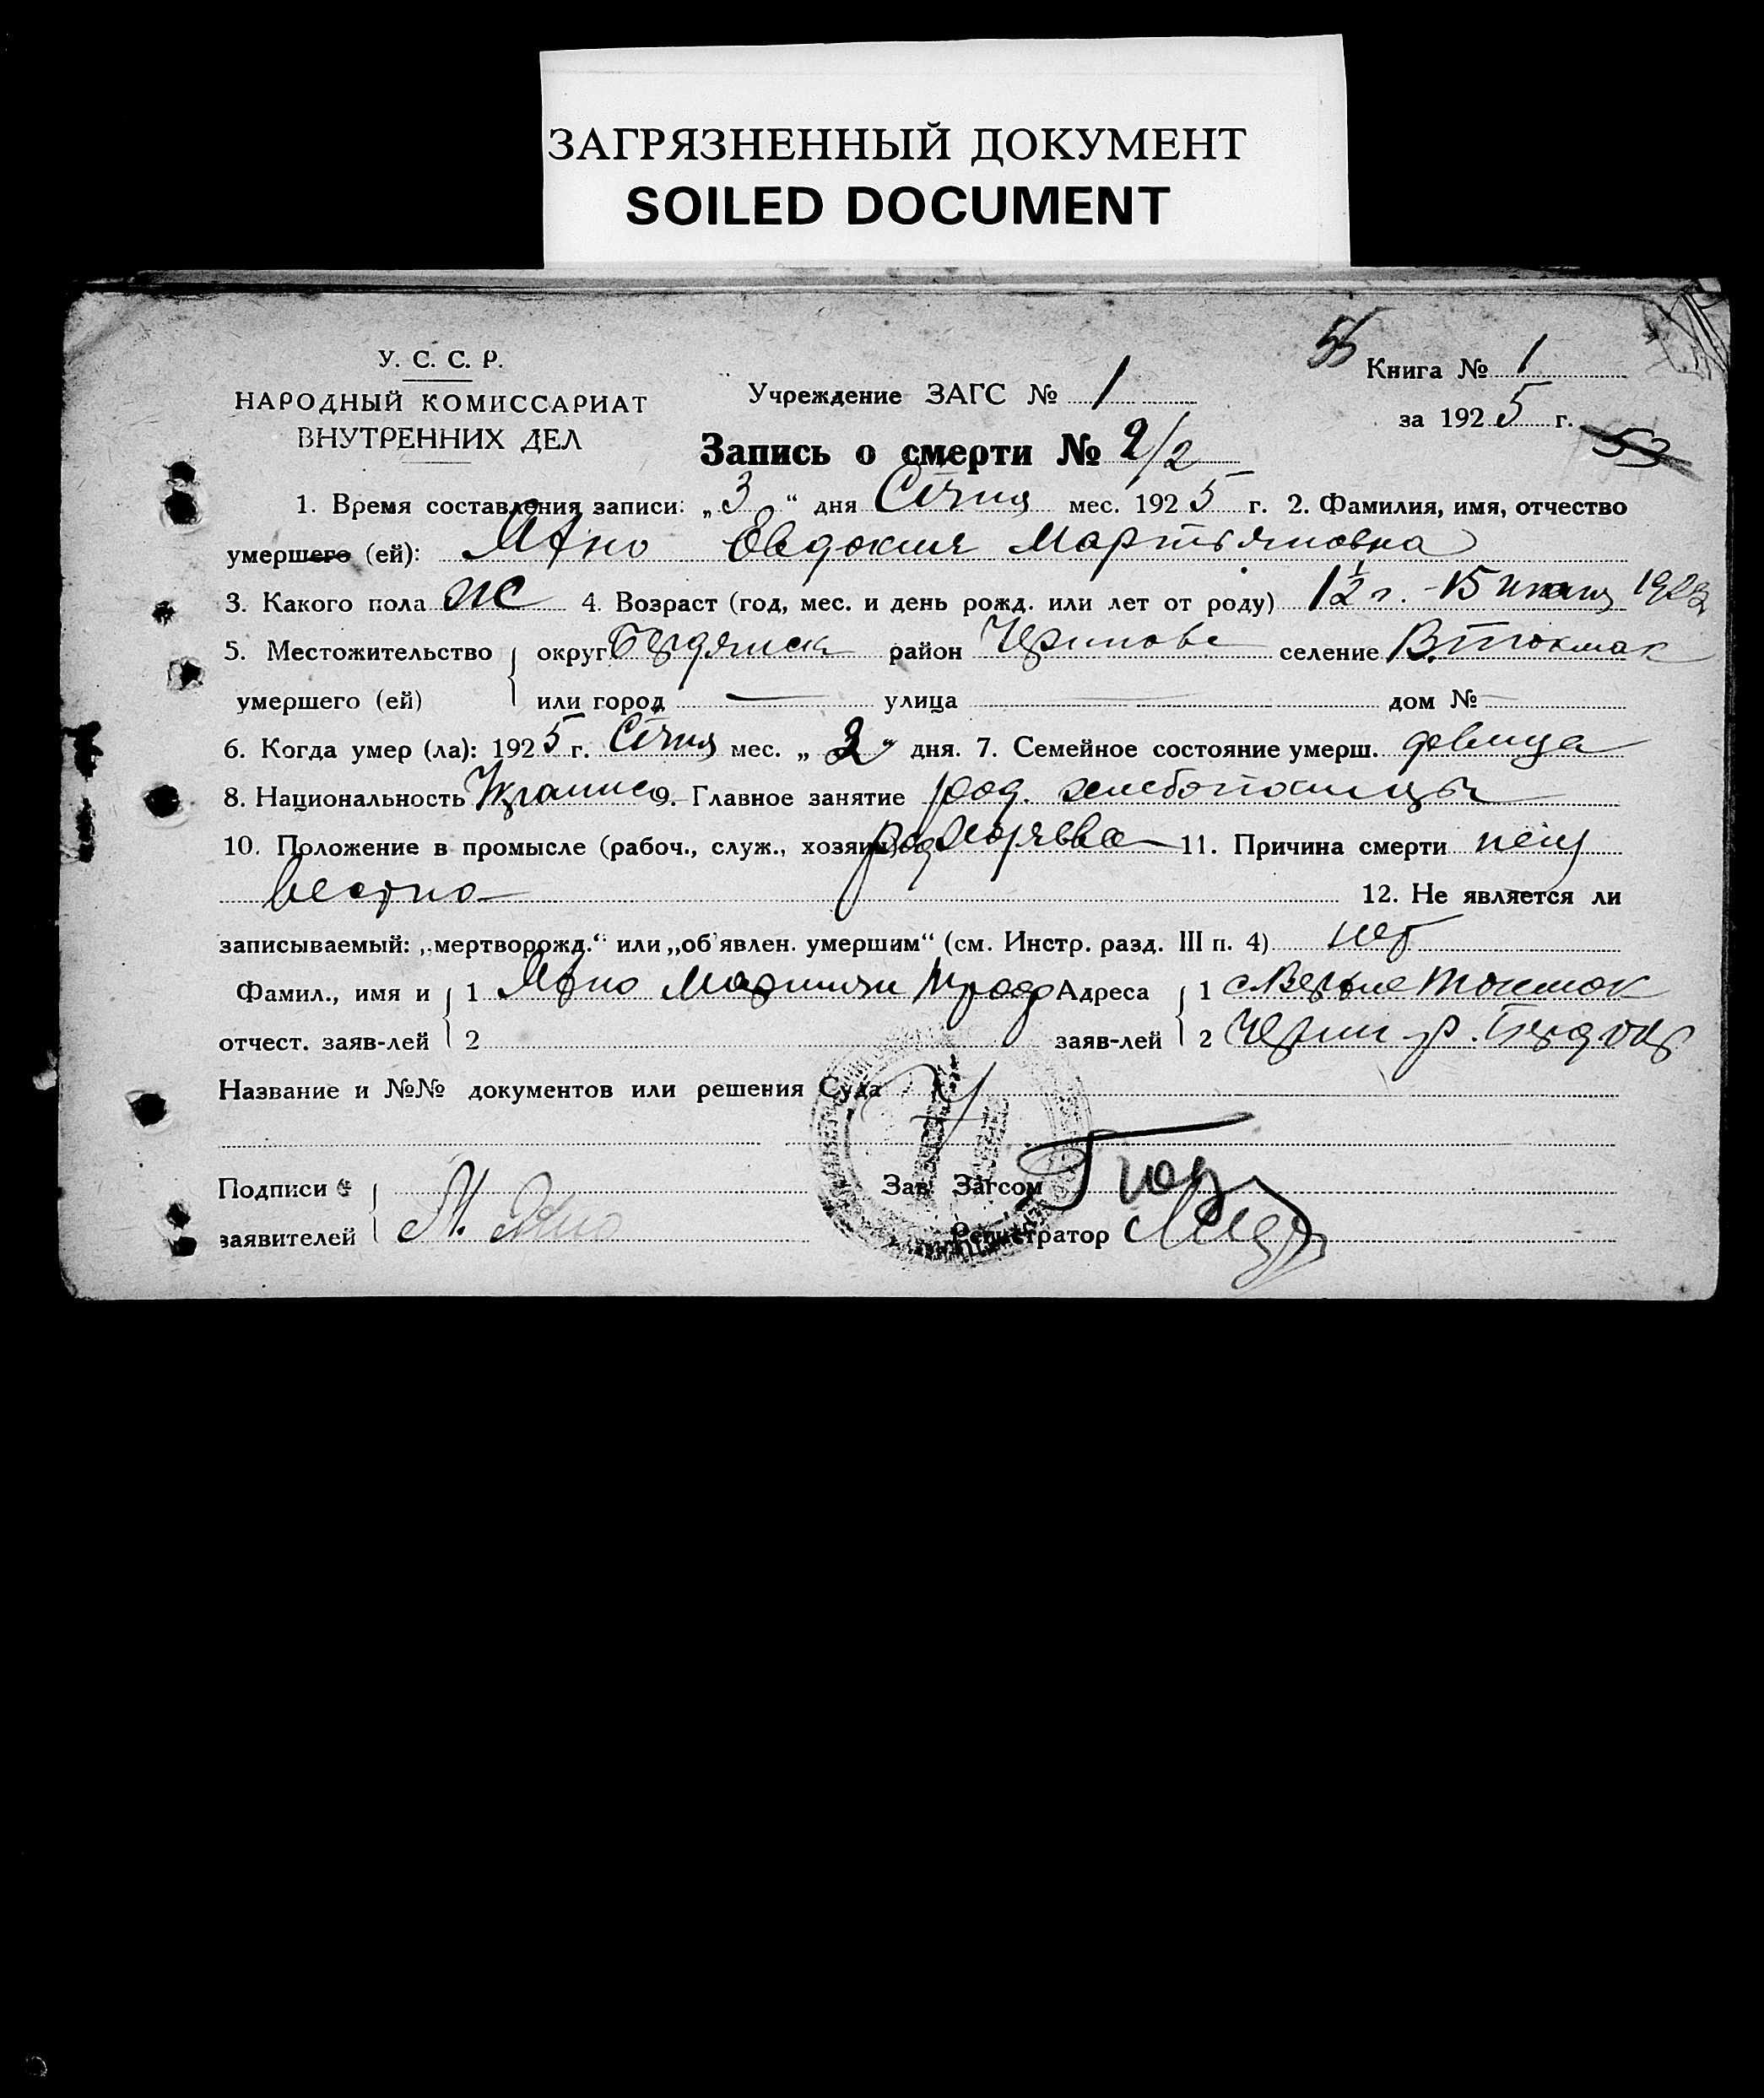 ЗАГРЯЗНЕННЫЙ ДОКУМЕНТ
SOILED DOCUMENT
У. С. С. Р.
НАРОДНЫЙ КОМИССАРИАТ
ВНУТРЕННИХ ДЕЛ
Учреждение ЗАГС № 1
55 Книга № 1
за 1925 г.
53
Запись о смерти № 2/2
1. Время составления записи: „3“ дня Січня мес. 1925 г. 2. Фамилия, имя, отчество
умершего (ей): Евдокия Мартьяновна
3. Какого пола ж 4. Возраст (год, мес. и день рожд. или лет от роду) 1½ г. - 15 1923
5. Местожительство округ Бердянск район селение В. Токмак
умершего (ей) или город — улица — дом № —
6. Когда умер (ла): 1925 г. Січня мес. „2“ дня. 7. Семейное состояние умерш. девица
8. Национальность Украинс 9. Главное занятие род. хлебопашцы
10. Положение в промысле (рабоч., служ., хозяин) род 11. Причина смерти неиз
вестно 12. Не является ли
записываемый: „мертворожд.“ или „об'явлен. умершим“ (см. Инстр. разд. III п. 4) нет
Фамил., имя и 1 Мартьян Адреса 1 Токмак
отчест. заяв-лей 2 заяв-лей 2
Название и №№ документов или решения Суда
Подписи Зав. Загсом
заявителей М. Регистратор